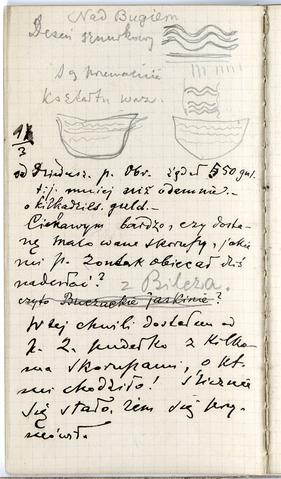 Nad Bugiem
Deseń sznurkowy
Są przeważnie
kształtu waz.
11/3
od Dzieduz. p. Obr. żąda 550 gul.
t.j. mniej niż odemnie
o kilkadzies. guld.
Ciekawym bardzo, czy dosta-
nę malowane skorupy, jakie
mi p. obiecał dziś
nadesłać?
z Bilcza.
czyto Buczackie jaskinie?
W tej chwili dostałem od
p. Z. pudełko z kilko-
ma skorupami, o kt.
mi chodziło! Ślicznie
się stało, żem się przy-
mówił.